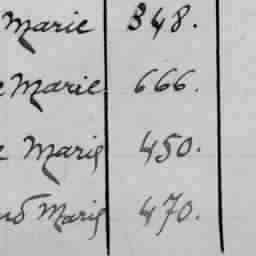 Marie 348.
e Marie 666.
e Marie 450.
Marie 470.